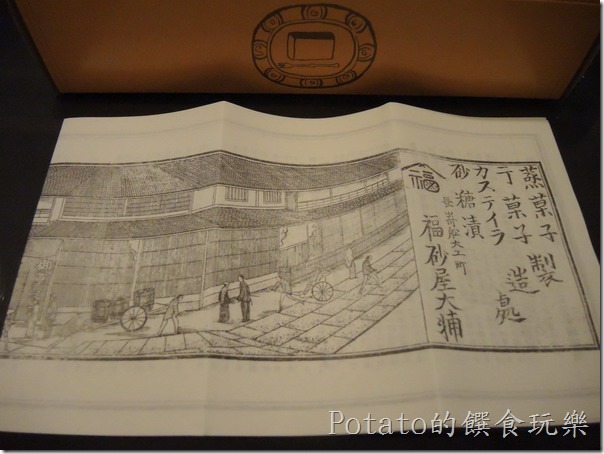 蒸菓子製
干菓子造處
カステイラ
砂糖漬
長崎舩大工町
福
福砂屋大鋪
Potato的饌食玩樂